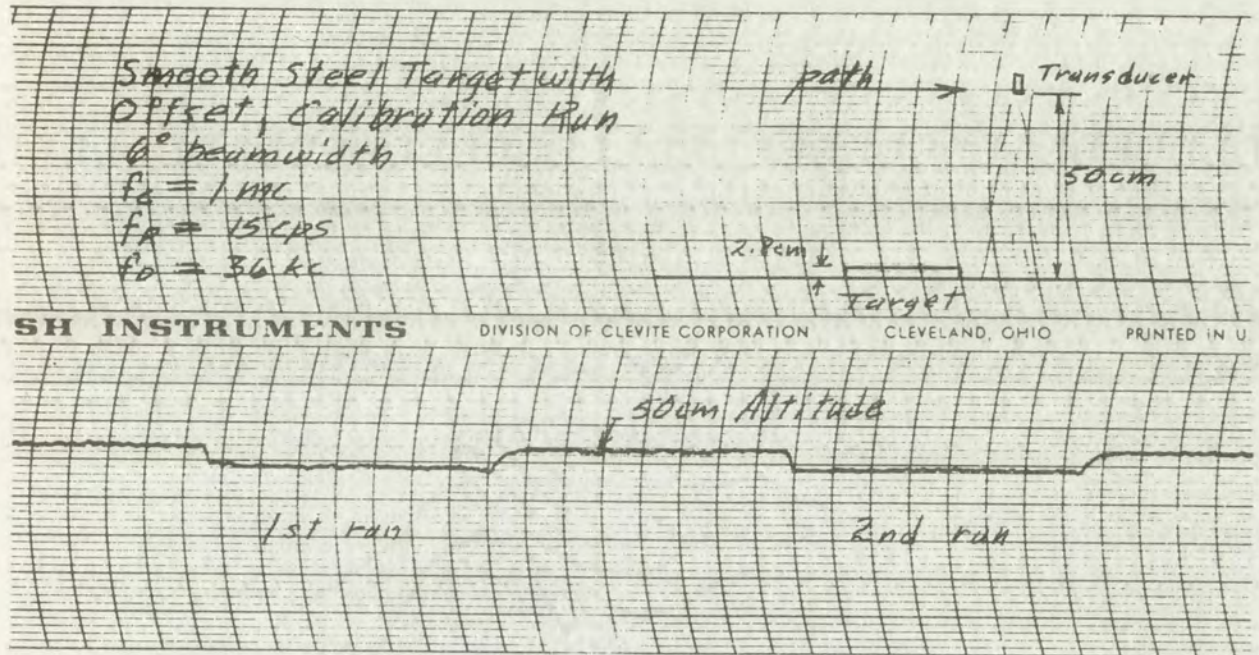 Smooth Steel Target with
Offset, Calibration Run
6° beamwidth
fc = 1 mc
fR = 15 cps
fD = 36 kc
path
Transducer
50 cm
2.8cm
Target
SH INSTRUMENTS DIVISION OF CLEVITE CORPORATION CLEVELAND, OHIO PRINTED IN U
50cm Altitude
1st run
2nd run